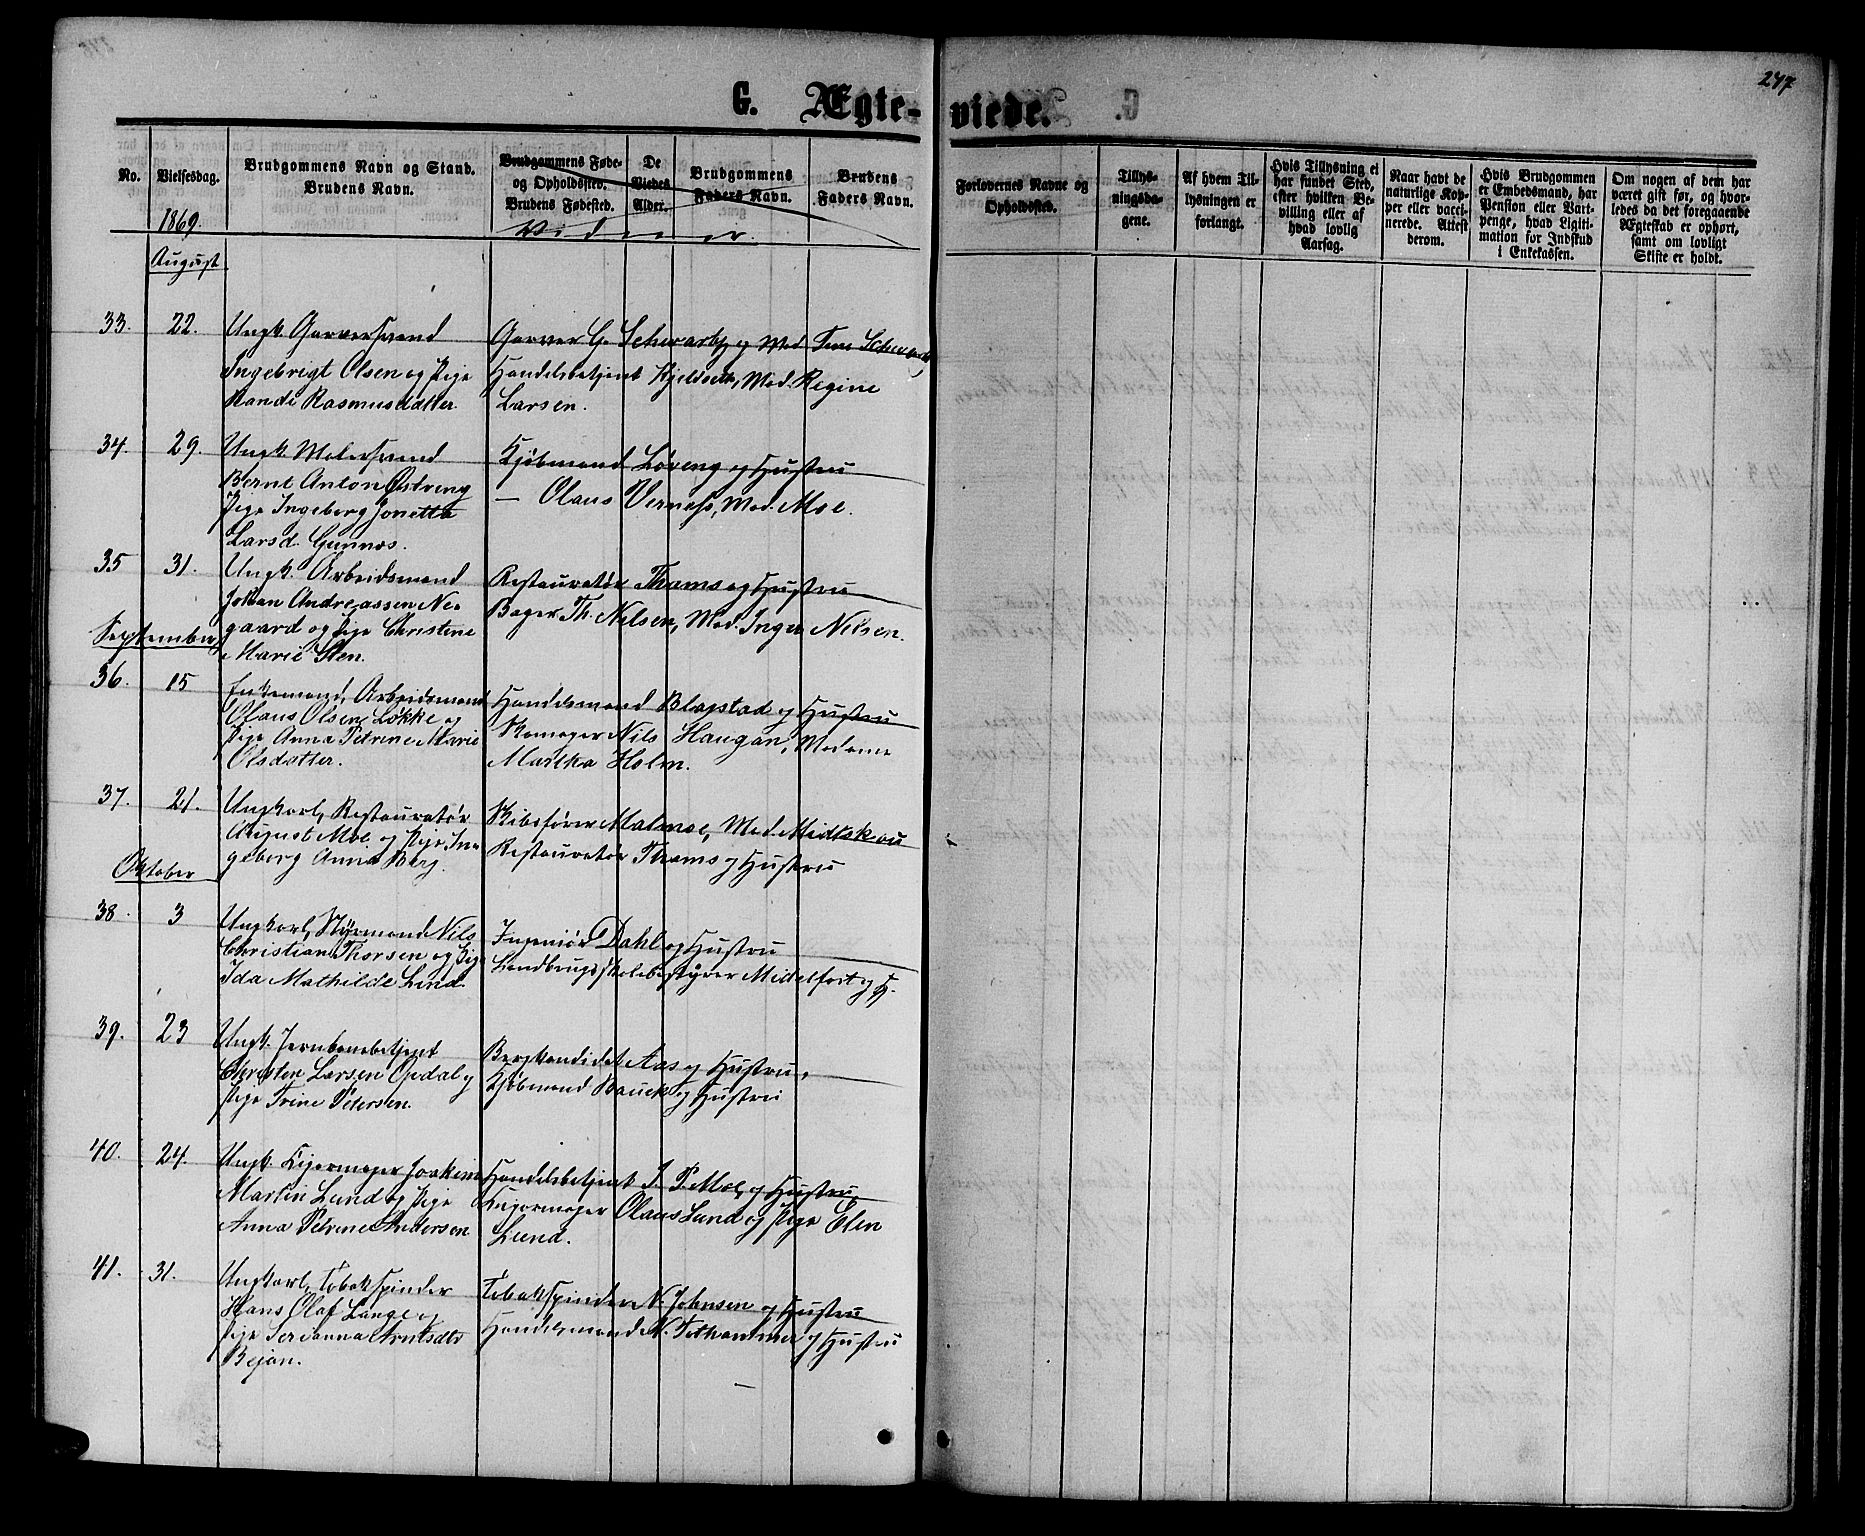 247
G. Ægte-viede.
No.
Vielsesdag.
Brudgommens Navn og Stand.
Brudens Navn.
Brudgommens Føde-
og Opholdssted.
Brudens Fødested.
De
Viedes
Alder.
Brudgommens
Faders Navn.
Brudens
Faders Navn.
Forlovernes Navne og
Opholdssted.
Tillys-
ningsda-
gene.
Af hvem Til-
lysningen er
forlangt.
Hvis Tillysning ei
har fundet Sted,
efter hvilken Be-
villing eller af
hvad lovlig
Aarsag.
Naar havt de
naturlige Kop-
per eller vacci-
nerede. Attest
derom.
Hvis Brudgommen
er Embedsmand, har
Pension eller Vart-
penge, hvad Ligiti-
mation for Indskud
i Enkekassen.
Om nogen af dem har
været gift før, og hvor-
ledes da det foregaaende
Ægteskab er ophørt,
samt om lovligt
Skifte er holdt.
1869.
Vidner.
August
33. 22. Ungk. Garversvend
Ingebrigt Olsen og Pige
Randi Rasmusdatter.
Garver G. Schwartz og Mad.
Handelsbetjent Kjeldseth, Mad. Regine
Larsen.
34. 29. Ungk. Malersvend
Bernt Anton Østreng
Pige Ingeborg Jonetta
Larsd. Gunnes.
Kjøbmand Løveng og Hustru
— Olaus Verness, Mad. Moe.
35 31. Ungk. Arbeidsmand
Johan Andreassen Ne-
gaard og Pige Christine
Marie Sten.
Restauratør Thams og Hustru
Bager Th. Nilsen, Mad. Inger Nilsen.
September
36. 15 Enkemand, Arbeidsmand
Olaus Olsen Løkke og
Pige Anna Petrine Marie
Olsdatter.
Handelsmand Blapstad og Hustru
Skomager Nils Haugan, Madame
Martha Holm.
37. 21. Ungkarl, Restauratør
August Moe og Pige In-
geborg Anna Berg.
Skibsfører Malmoe, Mad. Midtskou
Restauratør Thams og Hustru
Oktober
38. 3 Ungkarl, Styrmand Nils
Christian Thorsen og Pige
Ida Mathilde Lund.
Ingeniør Dahl og Hustru
Landbrugsskolebestyrer Midelfart og H.
39. 23 Ungk. Jernbanebetjent
Christen Larsen Opdal og
Pige Trine Petersen.
Bergkandidat Aas og Hustru,
Kjøbmand Bauck og Hustru
40. 24. Ungk. Joakim
Martin Lund og Pige
Anna Petrine Andersen
Handelsbetjent I. P. Moe og Hustru
Olaus Lund og Pige Elen
Lund.
41. 31. Ungkarl, Tobakspinder
Hans Olaf Lange og
Pige Serianna Arntsdtr
Bejan.
Tobakspinder N. Johnsen og Hustru
Handelsmand N. og Hustru